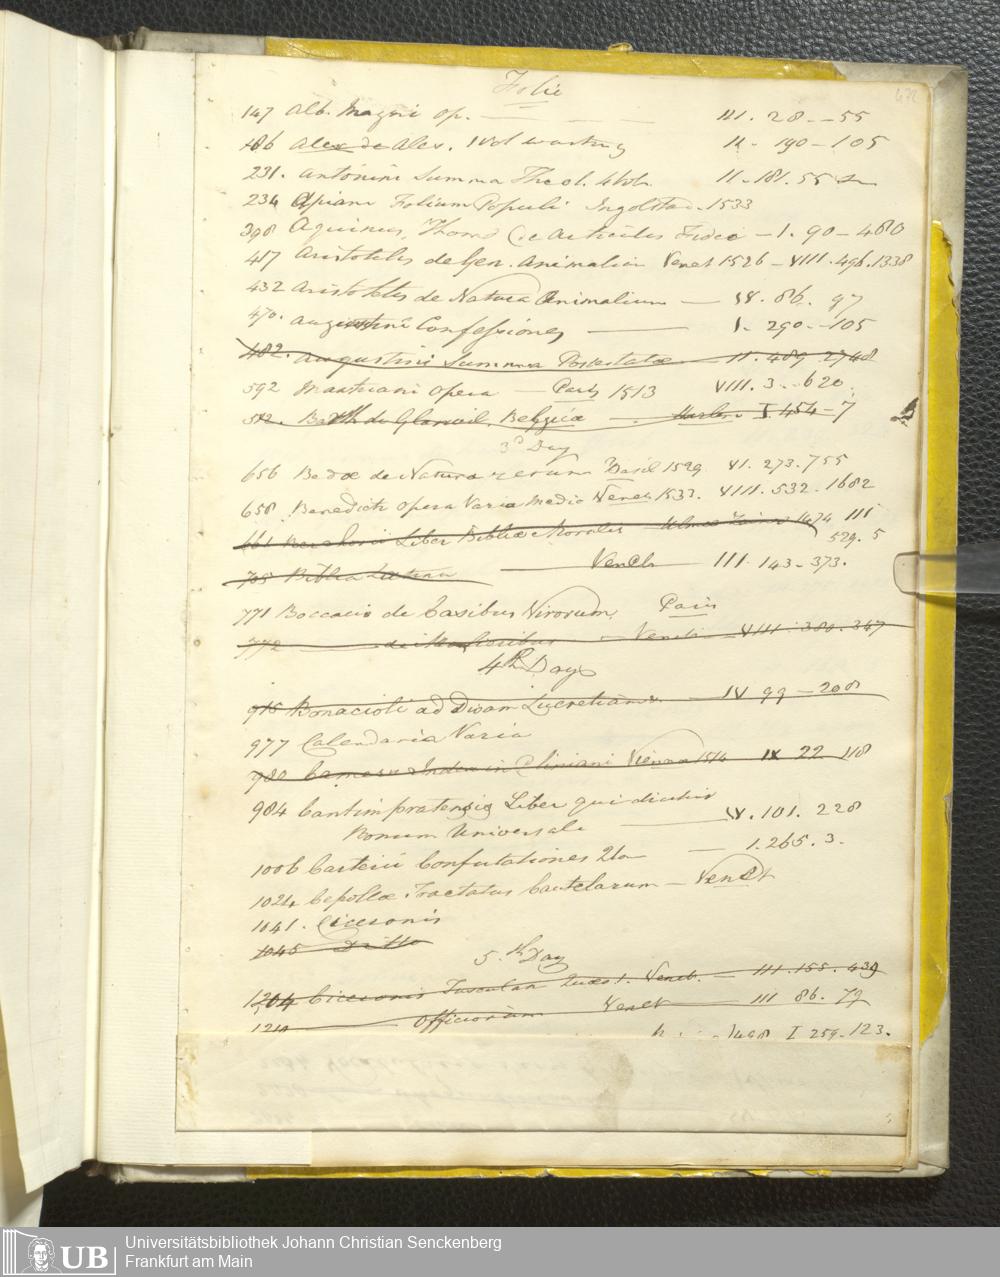 Folio
147 Alb. Magni Op. — III. 28 - - 55
186 Alex de Alex. 1 vol wanting II - 190 - 105
231. Antonini Summa Theol. 4 vols. II - 181. 55
234 Apiani Folium Populi Ingolstad. 1533
398 Aquinas, Thomas de Articulis Fidei - 1. 90 - 460
417 Aristotelis de Gen. Animalium Venet 1526 - VIII. 496. 1338
432 Aristotelis de Natura Animalium — IV. 86. 97
470. Augustini Confessiones — I - 290 - 105
482. Augustini Summa Potestate II. 489 2748
592 Opera — Paris 1513 VIII. 3. - 620
512. Barth de Glanvil, Belgice — Harlem I 454 - 7
3d Day
656 Bedae de Natura rerum Basil 1529 VI. 273. 755
658 Benedicti Opera Varia Medic Venet 1533. VIII. 532. 1682
661 Berchorii Liber Bibliae Moralis 1474 III
529. 5
765 Biblia Latina — Venet III 143 - 373.
771 Boccacio de Casibus Virorum Paris
772 — Venet VIII. 380. 347
4th Day
915 Bonacioli ad Divam Lucretiam — IV 99 - 208
977 Calendaria Varia
980 Index in Plinianii Vienna 1514 IX 22 118
984 Cantimpratensis Liber qui dicitur
Bonum Universale — IV. 101. 228
1006 Confutationes — 1. 265. 3.
1024 Cepollae Tractatus Cautelarum — Venet
1041. Ciceronis
1045 Ditto
5.th Day
1204 Ciceronis Tusculan Quest. Venet. — III. 155. 439
1211 — Officiorum Venet — III 86. 79
1498 I 259 - 123.
Universitätsbibliothek Johann Christian Senckenberg
Frankfurt am Main
UB